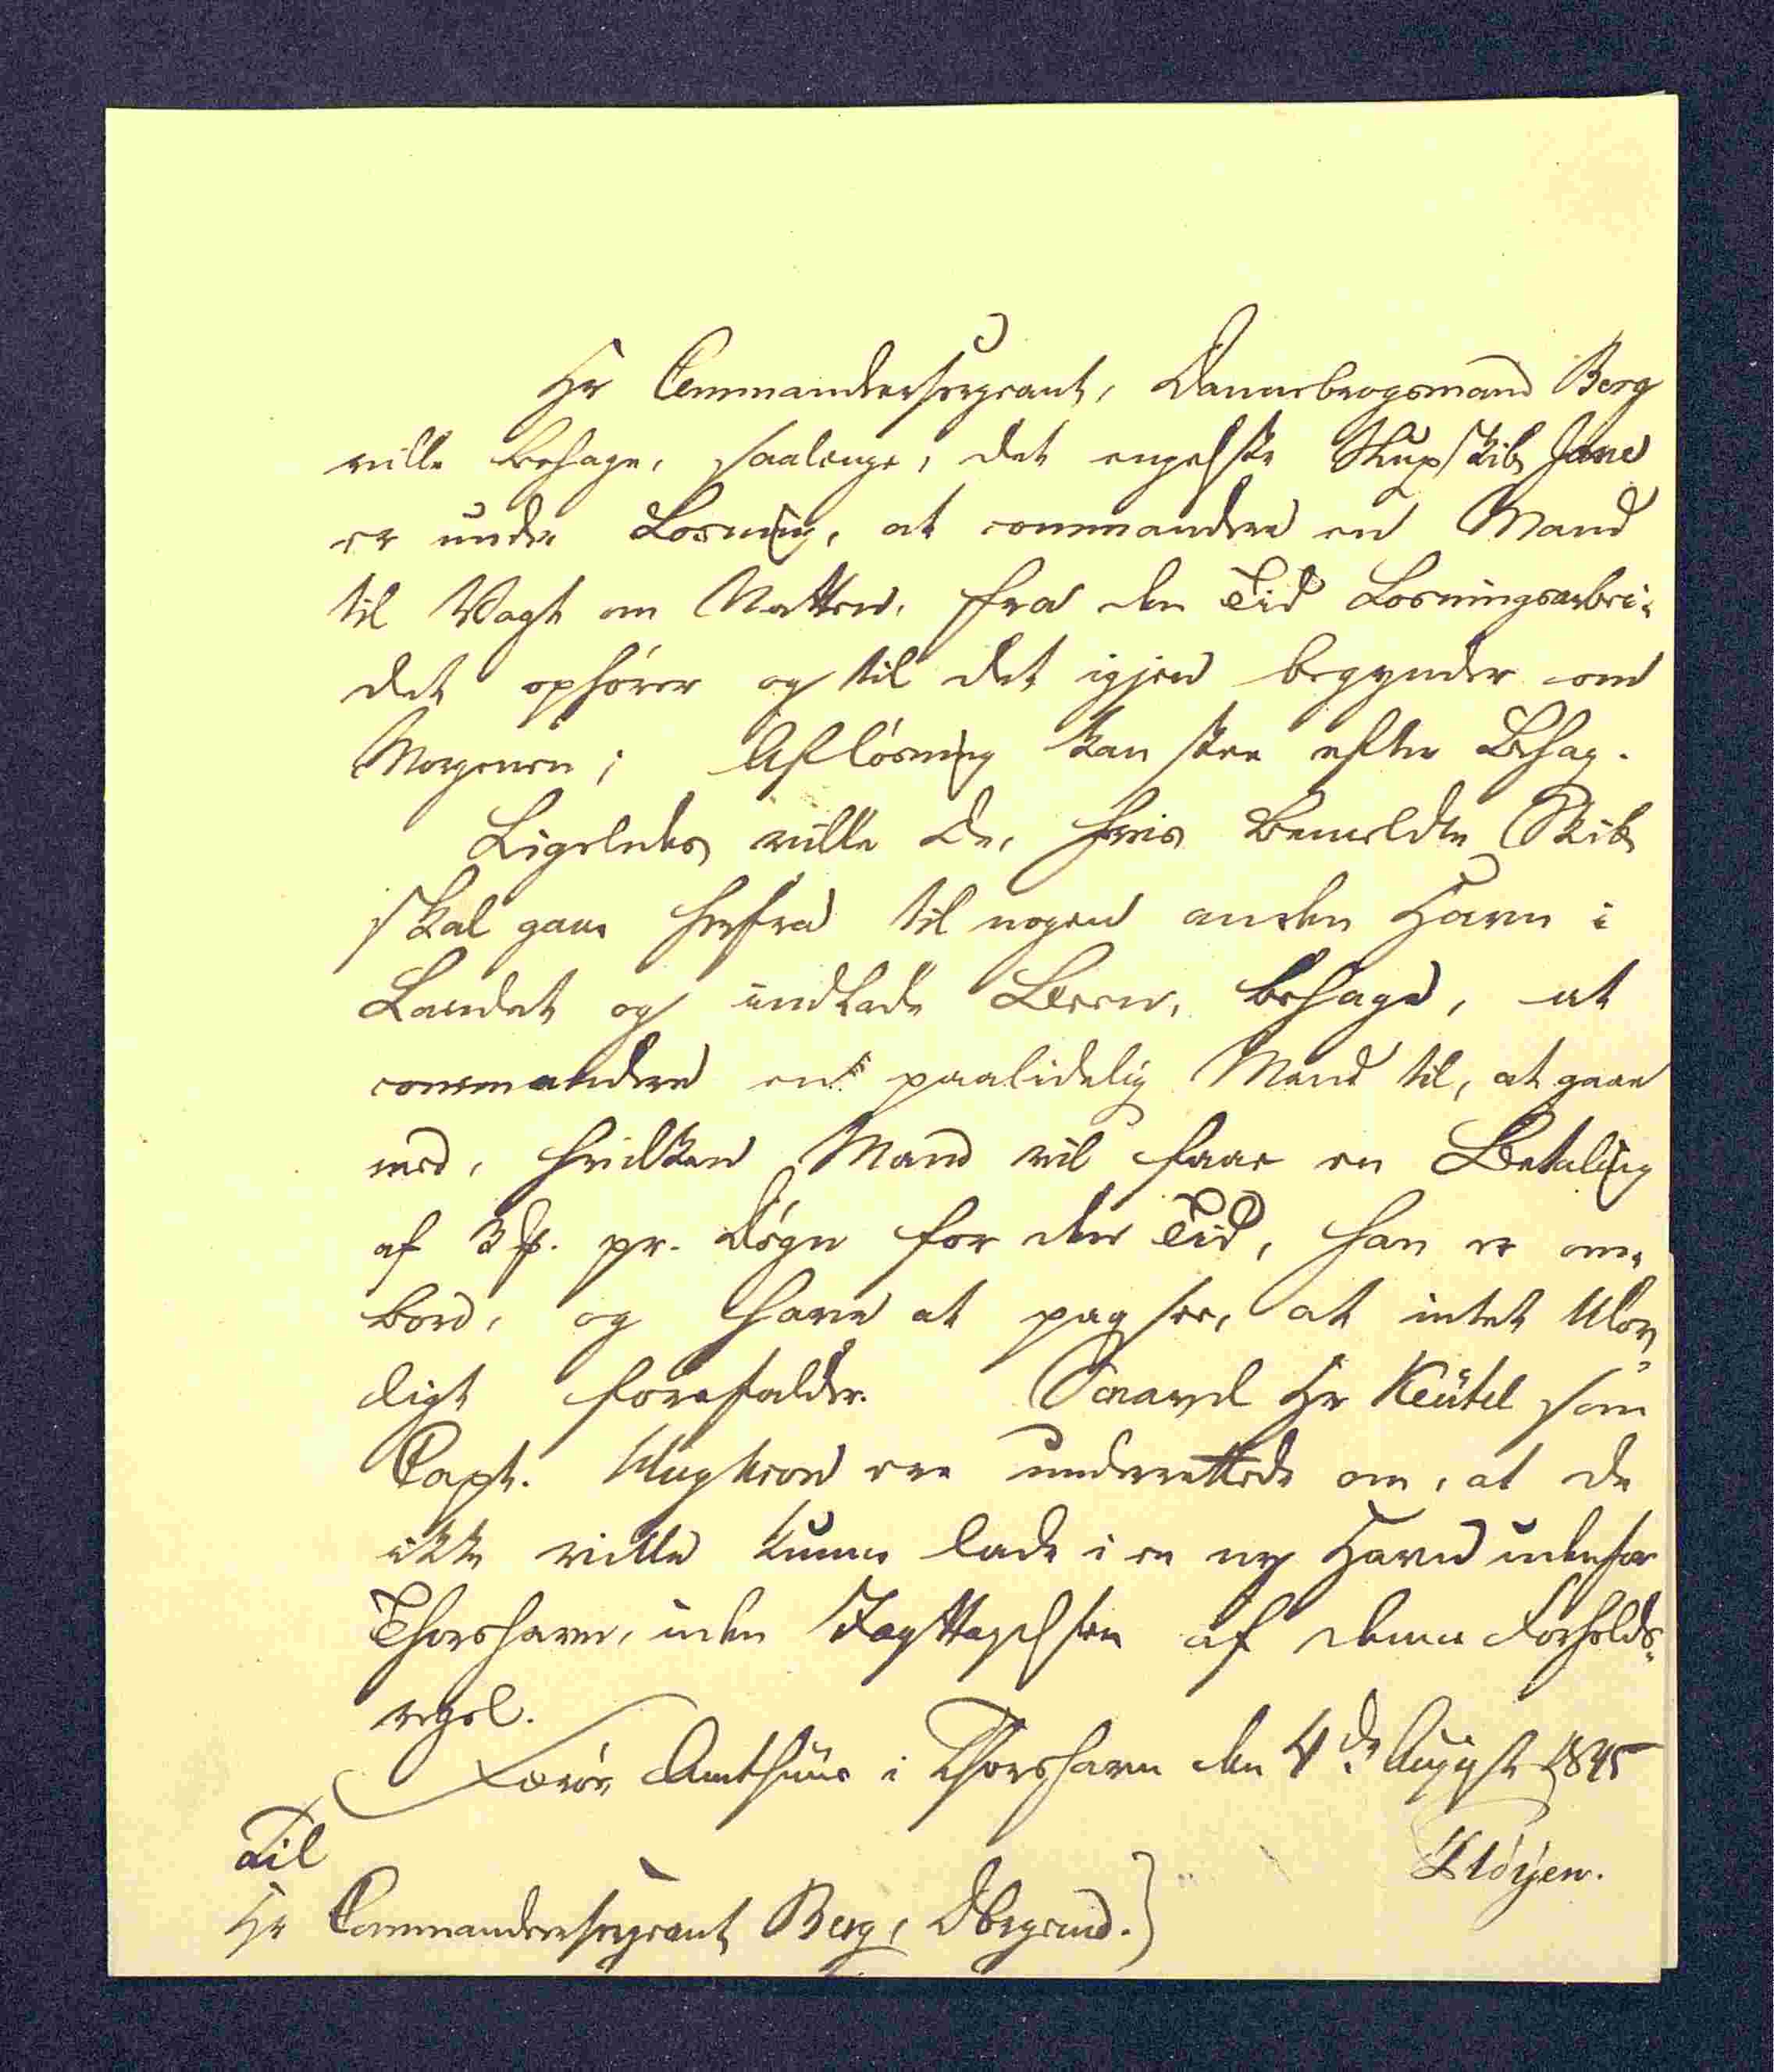 Hr Commandeersergeant, Dannebrogsmand Berg
ville behage, saalænge, det engelske Slupskib Jane
er under Losning, at commandere en Mand
til Vagt om Natten, fra den Tid Losningsarbei-
det ophører og til det igjen begynder om
Morgenen; Afløsning kan skee efter Behag.
Ligeledes ville De, hvis bemeldte Skib
skal gaae herfra til nogen anden Havn i
Landet og indlade Varer, behage, at
commandere en paalidelig Mand til, at gaae
med, hvilken Mand vil faae en Betaling
af 3 ß. pr. Døgn for den Tid, han er om-
bord, og have at paasee, at intet Ulov-
ligt forefalder. Saavel Hr Keütel som
Capt. ere underrettede om, at de
ikke ville kunne lade i en ny Havn udenfor
Thorshavn, uden Iagttagelsen af denne Forholds-
regel.
Færøe Amthuus i Thorshavn den 4de August 1845
Pløyen.
Til
Hr Commandeersergeant Berg, Dbrgmd.